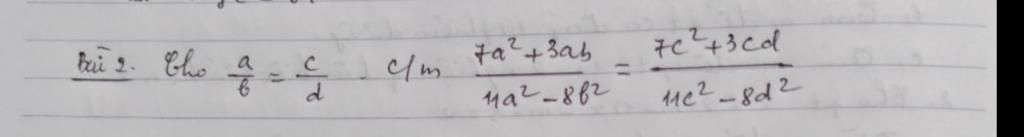 Bài 2. Cho a/b = c/d - c/m (7a² + 3ab)/(11a² - 8b²) = (7c² + 3cd)/(11c² - 8d²)